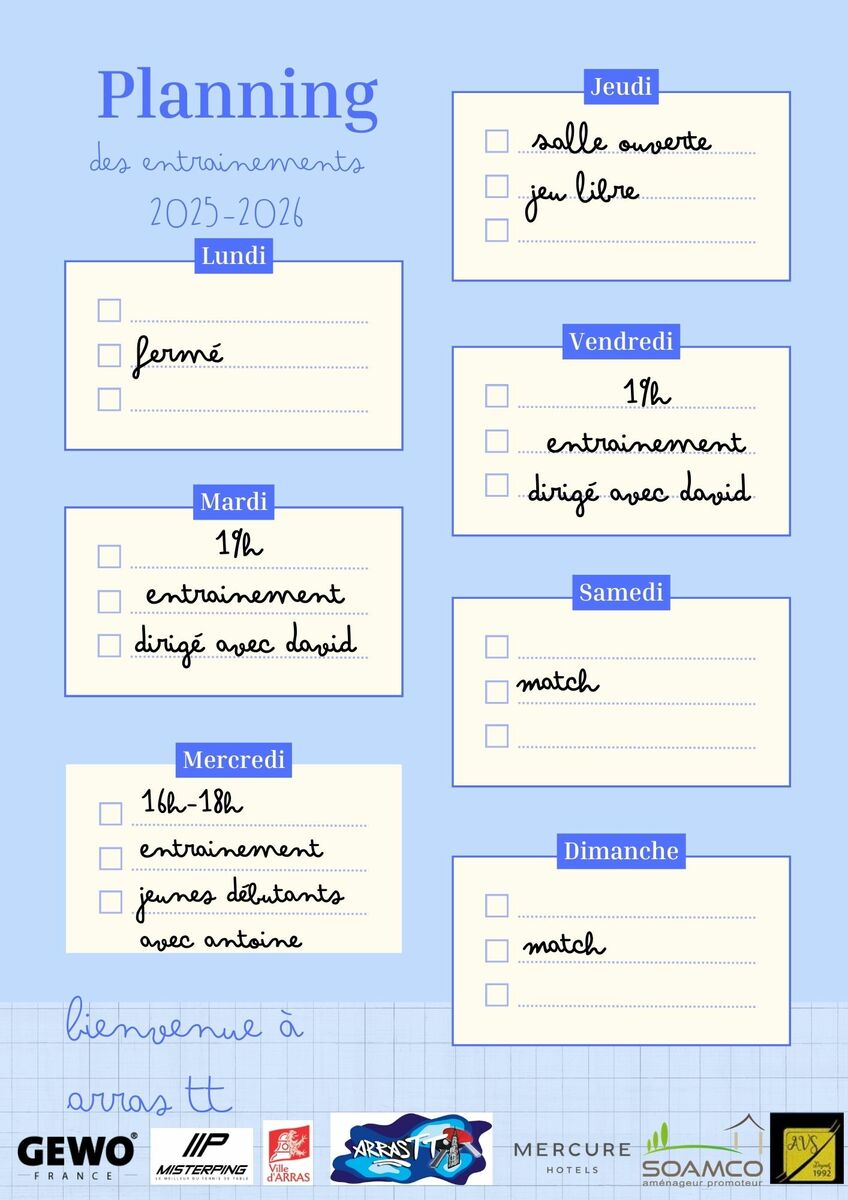 Planning
des entrainements
2025-2026
Lundi
fermé
Mardi
19h
entrainement
dirigé avec david
Mercredi
16h-18h
entrainement
jeunes débutants
avec antoine
Jeudi
salle ouverte
jeu libre
Vendredi
19h
entrainement
dirigé avec david
Samedi
match
Dimanche
match
bienvenue à
arras tt
GEWO®
FRANCE
MISTERPING
LE MEILLEUR DU TENNIS DE TABLE
Ville
d'ARRAS
ARRAS TT
MERCURE
HOTELS
SOAMCO
aménageur promoteur
AVS
Depuis
1992